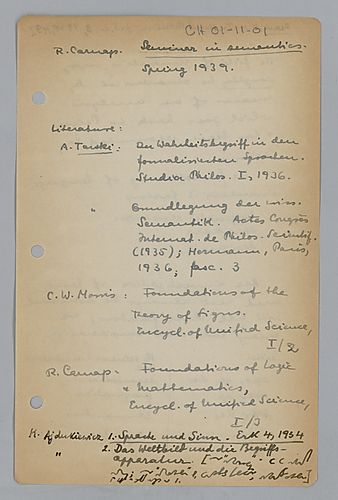 CH 01-11-01
R. Carnap. Seminar in semantics.
Spring 1939.
Literature:
A. Tarski: Der Wahrheitsbegriff in den
formalisierten Sprachen.
Studia Philos. I, 1936.
" Grundlegung der wiss.
Semantik. Actes Congrès
Internat. de Philos. Scientif.
(1935); Hermann, Paris,
1936; fasc. 3
C. W. Morris: Foundations of the
Theory of Signs.
Encycl. of Unified Science,
I/2
R. Carnap. Foundations of Logic
& Mathematics,
Encycl. of Unified Science,
I/3
K. Ajdukiewicz 1. Sprache und Sinn. Erk 4, 1934
" 2. Das Weltbild und die Begriffs-
apparatur.